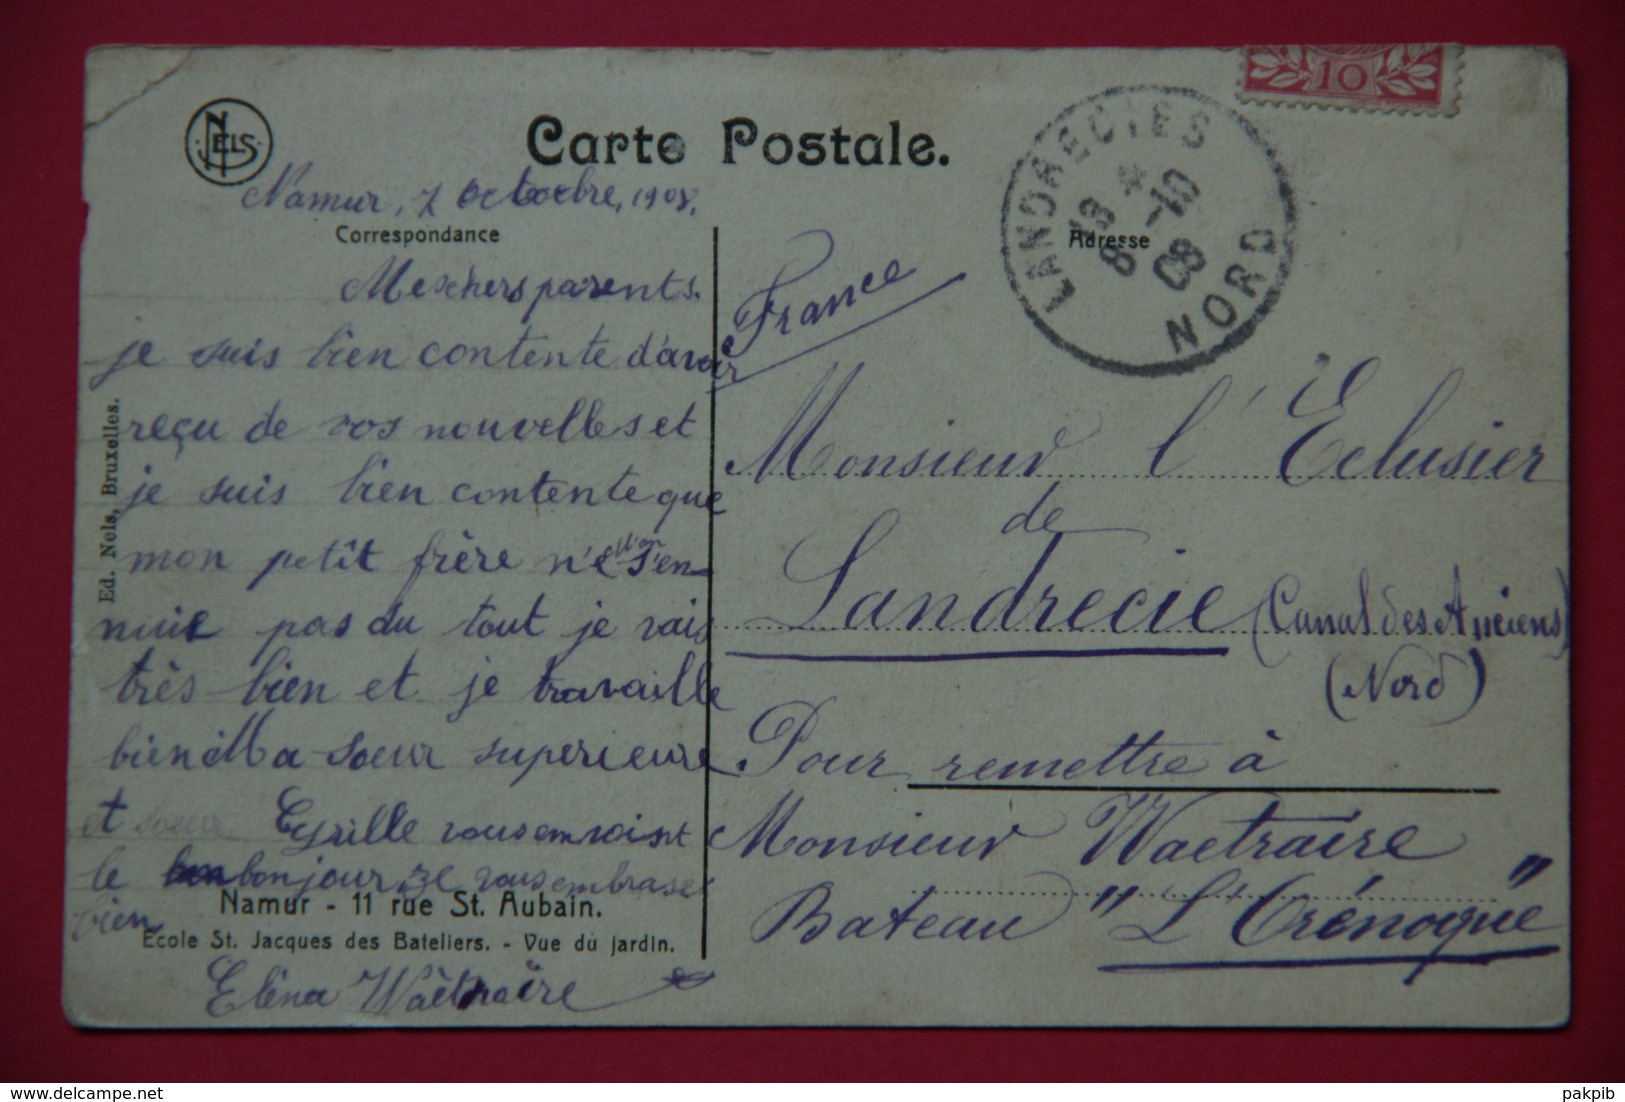 NELS
Carte Postale.
10
LANDRECIES
18 * 8-10 08
NORD
Namur, 7 Octocbre, 1908.
Correspondance
Meschers parents.
je suis bien contente d'avoir
reçu de vos nouvelles et
je suis bien contente que
mon petit frère n'ell'on s'en-
nuie pas du tout je vais
très bien et je travaille
bien Ma Sœur superieure
et soeur Cyrille vous envoisnt
le bonjour. Je vous embrasse
bien
Namur - 11 rue St. Aubain.
Ecole St. Jacques des Bateliers. - Vue du jardin.
Eléna Waëtraïre
Ed. Nels, Bruxelles.
Adresse
France
Monsieur l'Eclusier
de
Landrecie (Canal des Anciens)
(Nord)
Pour remettre à
Monsieur Waetraire
Bateau "L'Orénoque"
pakpib